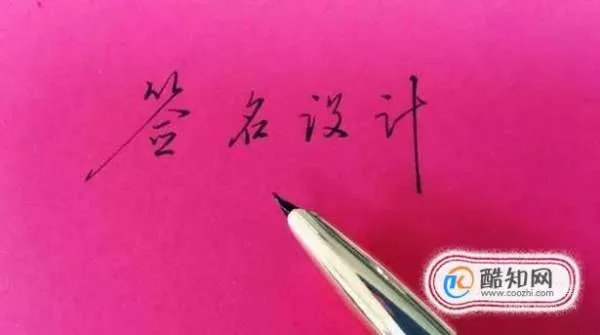 签名设计
酷知网
www.coozhi.com